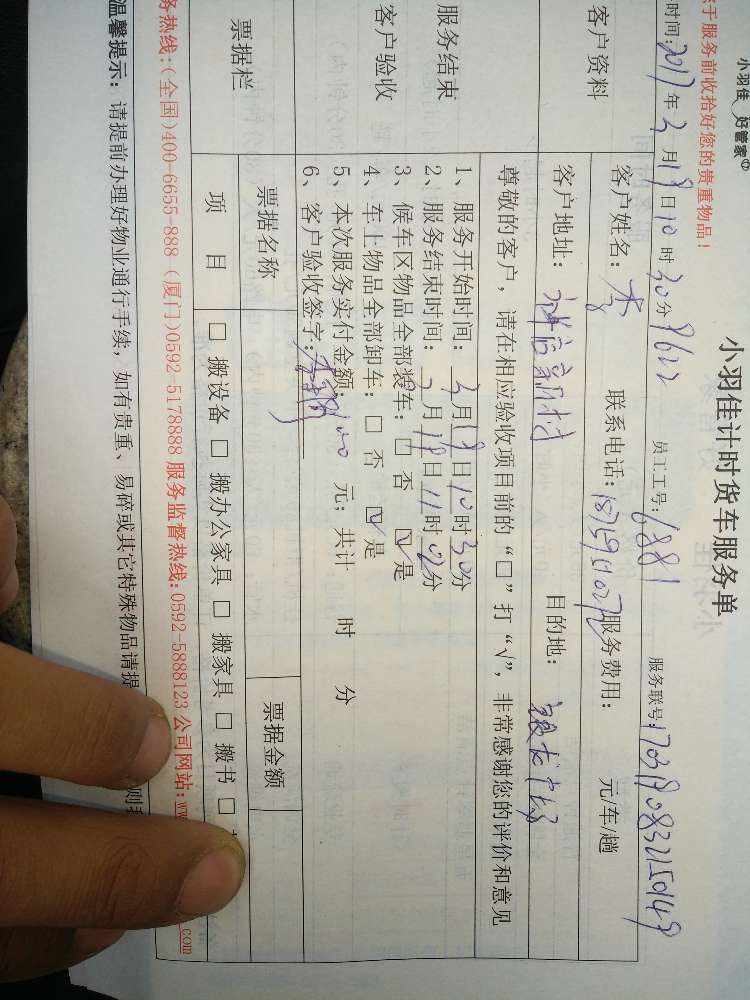 小羽佳 好管家
小羽佳计时货车服务单
于服务前收拾好您的贵重物品！
时间: 2017年3月19日10时30分 员工工号: 6881 服务联号: 1703190832150149
客户资料
客户姓名: 李 联系电话: 服务费用: 元/车/趟
客户地址: 祥店新村 目的地:
尊敬的客户，请在相应验收项目前的“□”打“√”，非常感谢您的评价和意见
服务结束
客户验收
1、服务开始时间: 3月19日10时30分
2、服务结束时间: 3月19日11时02分
3、候车区物品全部装车: □ 否 ☑ 是
4、车上物品全部卸车: □ 否 ☑ 是
5、本次服务实付金额: 100 元; 共计 时 分
6、客户验收签字:
票据栏
票据名称 票据金额
项 目 □ 搬设备 □ 搬办公家具 □ 搬家具 □ 搬书 □
务热线:(全国)400-6655-888 (厦门)0592-5178888 服务监督热线:0592-5888123 公司网站: com
温馨提示: 请提前办理好物业通行手续，如有贵重、易碎或其它特殊物品请提